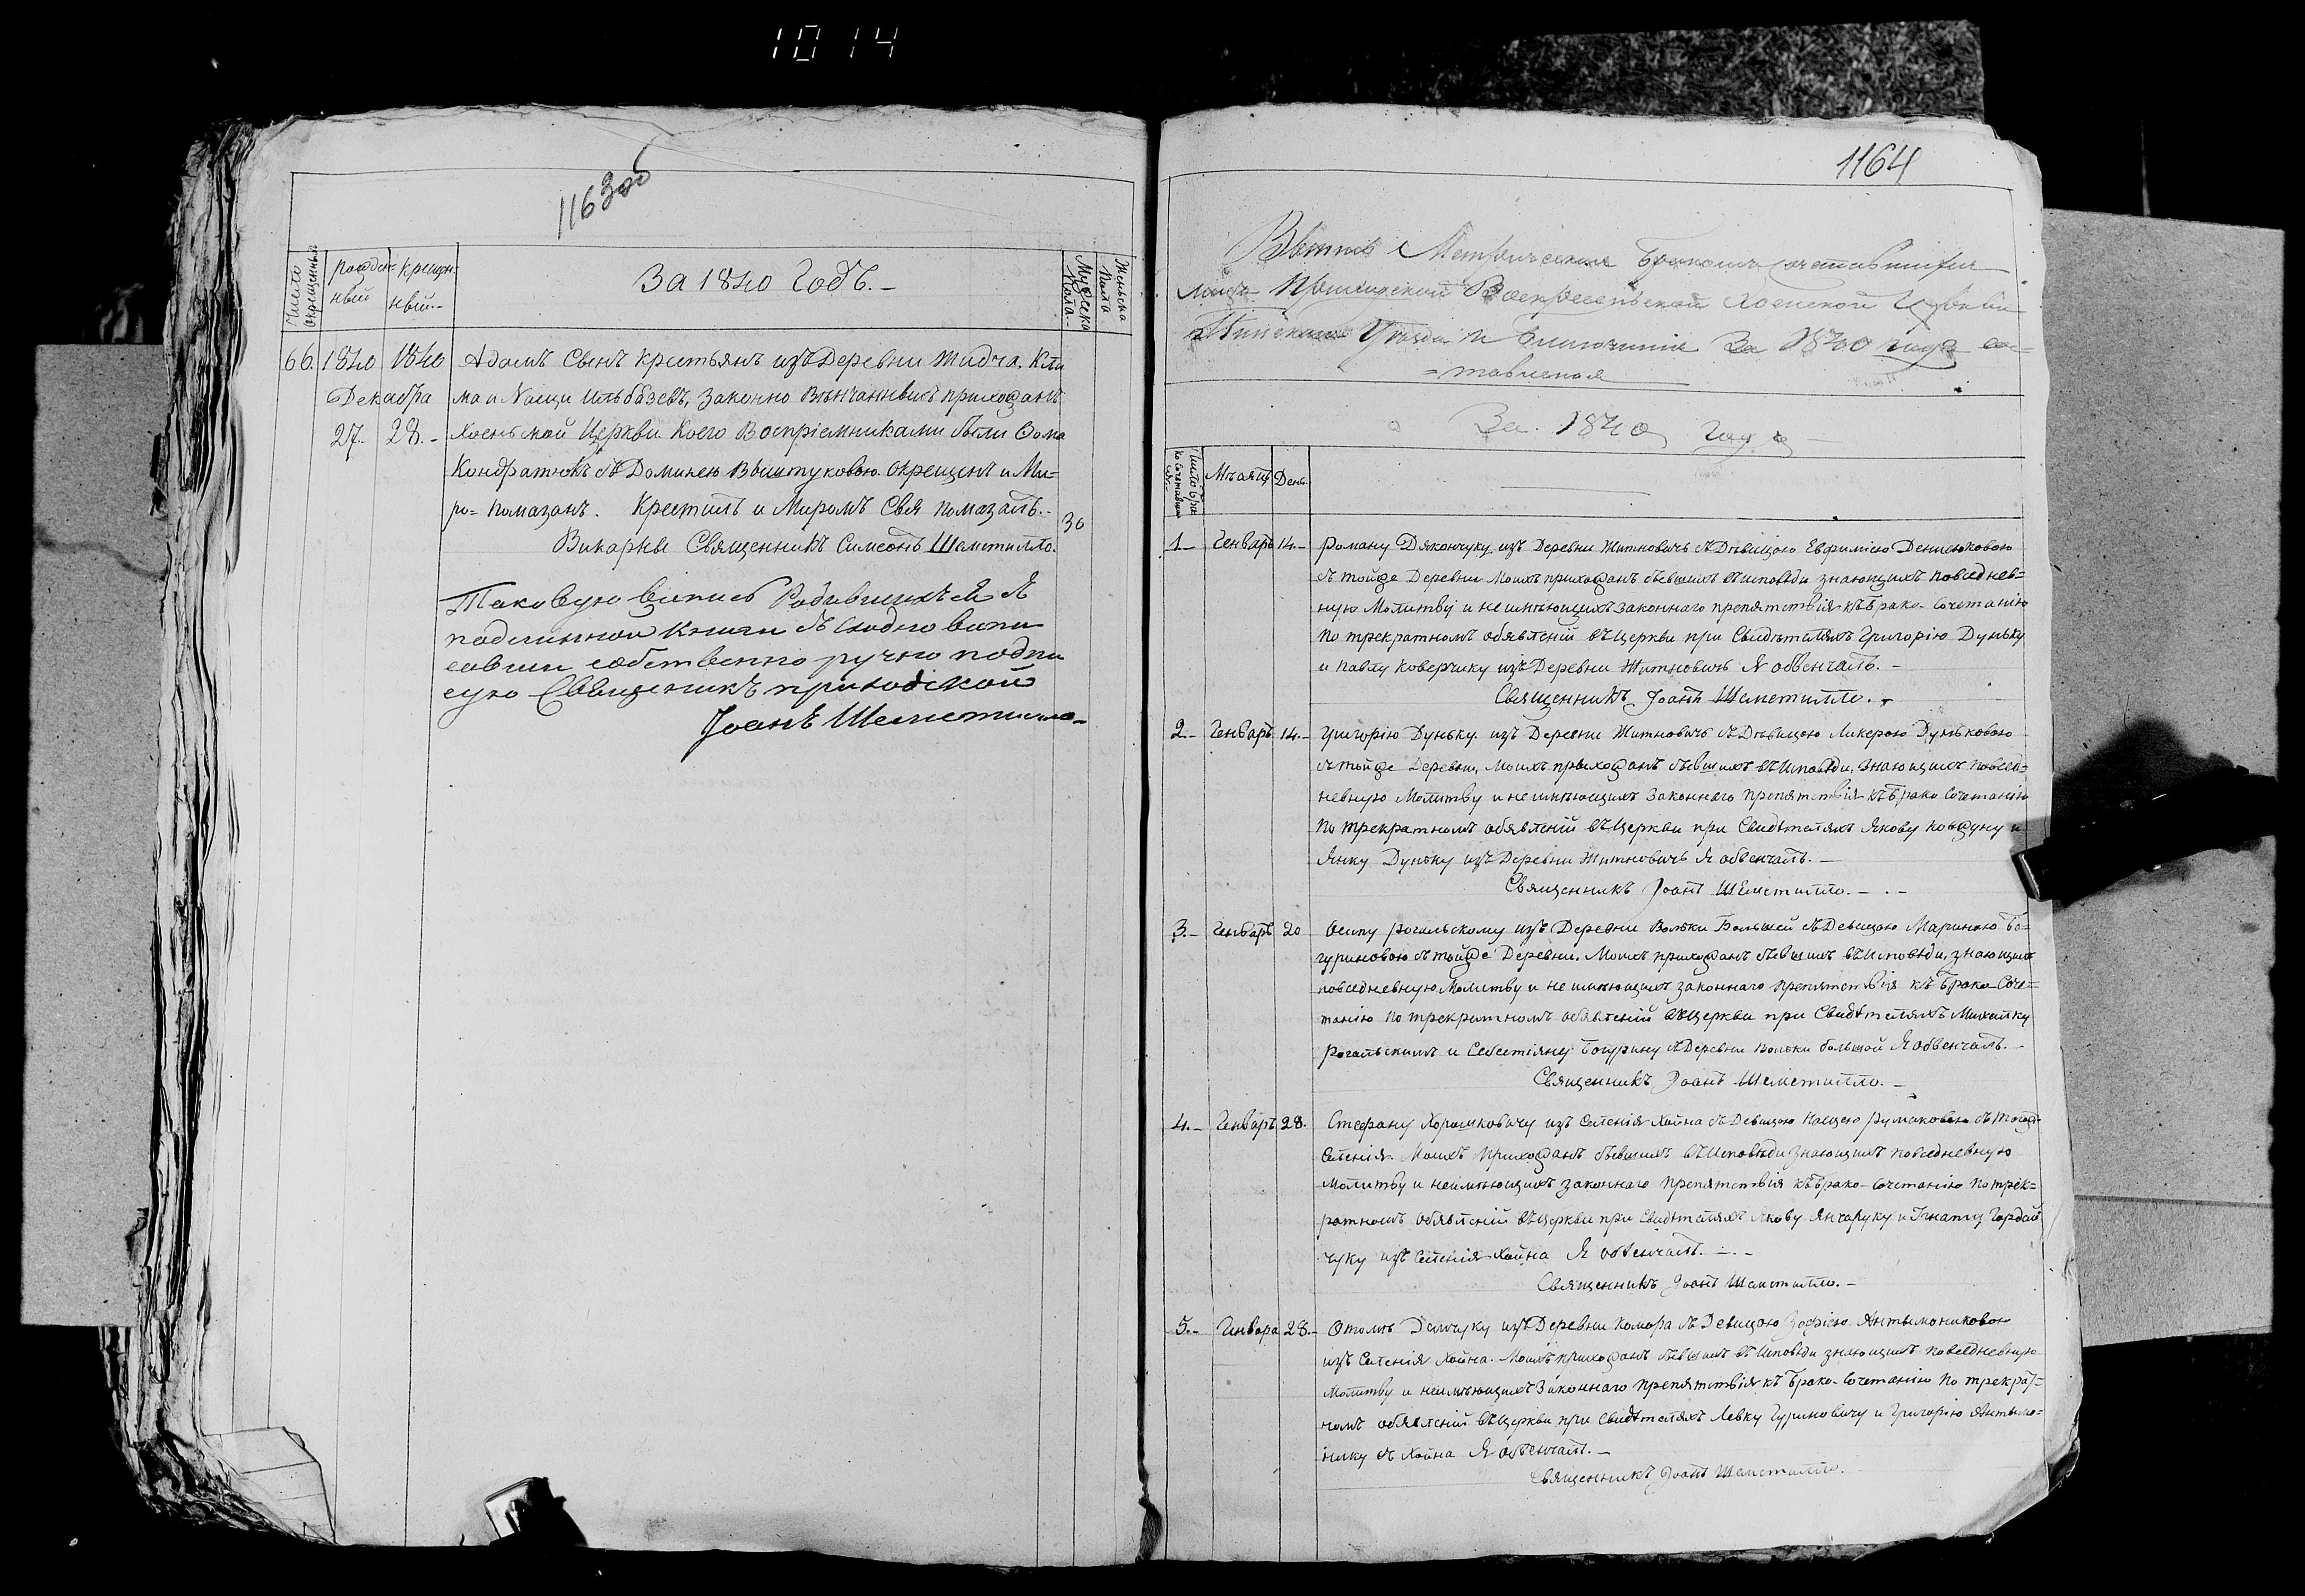 1014
1163об
Число Окрещенныхъ
рожден-
ный
крещен-
ный
За 1840 Годъ.-
Мужеска Пола.-
Женьска Пола
66. 1840 1840 Адамъ Свенъ крестьянъ изъ Деревни Жидча. Кли
Декабра ма и Насци Ильбазевъ, Законно Венчанныхъ прихожанъ
27.- 28.- Хоенской Церкви Коего Воспріемниками были Фома
Кондратюкъ съ Доминею Вештуковою. Окрещенъ и Ми=
ро= помазанъ. Крестилъ и Миромъ Свя помазалъ.-
30
Викарны Священникъ Симеонъ Шеметилло.
Таковую выпись Родившихся съ
подлинной книги съ сходно выпи
савши собственно ручно подпи
сую Священникъ приходской
Іоанъ Шеметилло
1164
Выпись Метрическая Бракомъ сочетавшихся
лицъ Воскресенской Хоенской Церкви
Пинскаго Уезда и Благочинія За 1840 годъ со=
=ставленая
За 1840 годъ
Число Бра ко Сочетавших
Мѣсяцъ
День
1.- Генваръ 14.- Роману Дякончуку изъ Деревни Житновичъ съ Дѣвицою Евфимією Денисюковою
съ тойже Деревни Моихъ прихожанъ бывшихъ въ исповѣди знающихъ повседнев=
ную Молитву и неимѣющихъ законнаго препятствія къ Брако-Сочетанію
по трекратномъ обявленій въ Церкви при Свидѣтеляхъ Григорію Дуньку
и Павлу Коверчику изъ Деревни Житновичъ Я обвенчалъ.-
Священникъ Іоанъ Шеметилло.-
2.- Генваръ 14.- Григорію Дуньку изъ Деревни Житновичъ съ Дѣвицою Ликерою Дуньковою
съ тойже Деревни, Моихъ прихожанъ бывшихъ въ Исповѣди, Знающихъ повсед=
невную Молитву и неимѣющихъ Законнаго препятствія къ Брако Сочетанію
По трекратномъ обявленій въ Церкви при Свидѣтеляхъ Якову Ковжуну и
Янку Дуньку изъ Деревни Житновичъ Я обвенчалъ.-
Священникъ Іоанъ Шеметилло.-.-
3.- Генваръ 20 Осипу Рогальскому изъ Деревни Вольки Большей съ Девицою Мариною Бо=
гуриновою съ тойже Деревни. Моихъ прихожанъ бывшихъ въ Исповѣди, знающихъ
повседневную Молитву и не имѣющихъ законнаго препятствія къ Брако-Соче=
танію По трекратномъ обявленій въ Церкви при Свидѣтеляхъ Михалку
Рогальскимъ и Себестіяну Богурину съ Деревни Вольки большой Я обвенчалъ.-
Священникъ Іоанъ Шеметилло.-
4.- Генваръ 28. Стефану Хорошковичу изъ Селенія Хойна съ Девицою Насцею Румаковою съ тогож
Селенія. Моихъ Прихожанъ бывшихъ въ Исповѣди Знающихъ повседневную
Молитву и неимѣющихъ законнаго Препятствія къ Брако-Сочетанію По трек=
ратномъ обявленій въ Церкви при Свидѣтеляхъ Якову Янчаруку и Игнату Гордей
чуку изъ Селенія Хойна Я обвенчалъ.-.-
Священникъ Іоанъ Шеметилло.-
5.- Генвара 28.- Фтомъ Демчуку изъ Деревни Комора съ Девицою Зофією Антымониковою
изъ Селенія Хойна. Моихъ прихожанъ бывшихъ въ Исповѣди знающихъ повседневную
Молитву и неимѣющихъ Законнаго Препятствія къ Брако-Сочетанію По трекрат=
номъ обявленій въ Церкви при Свидѣтеляхъ Левку Гуриновичу и Григорію Антымо=
нику съ Хойна Я обвенчалъ.-
Священникъ Іоанъ Шеметилло.